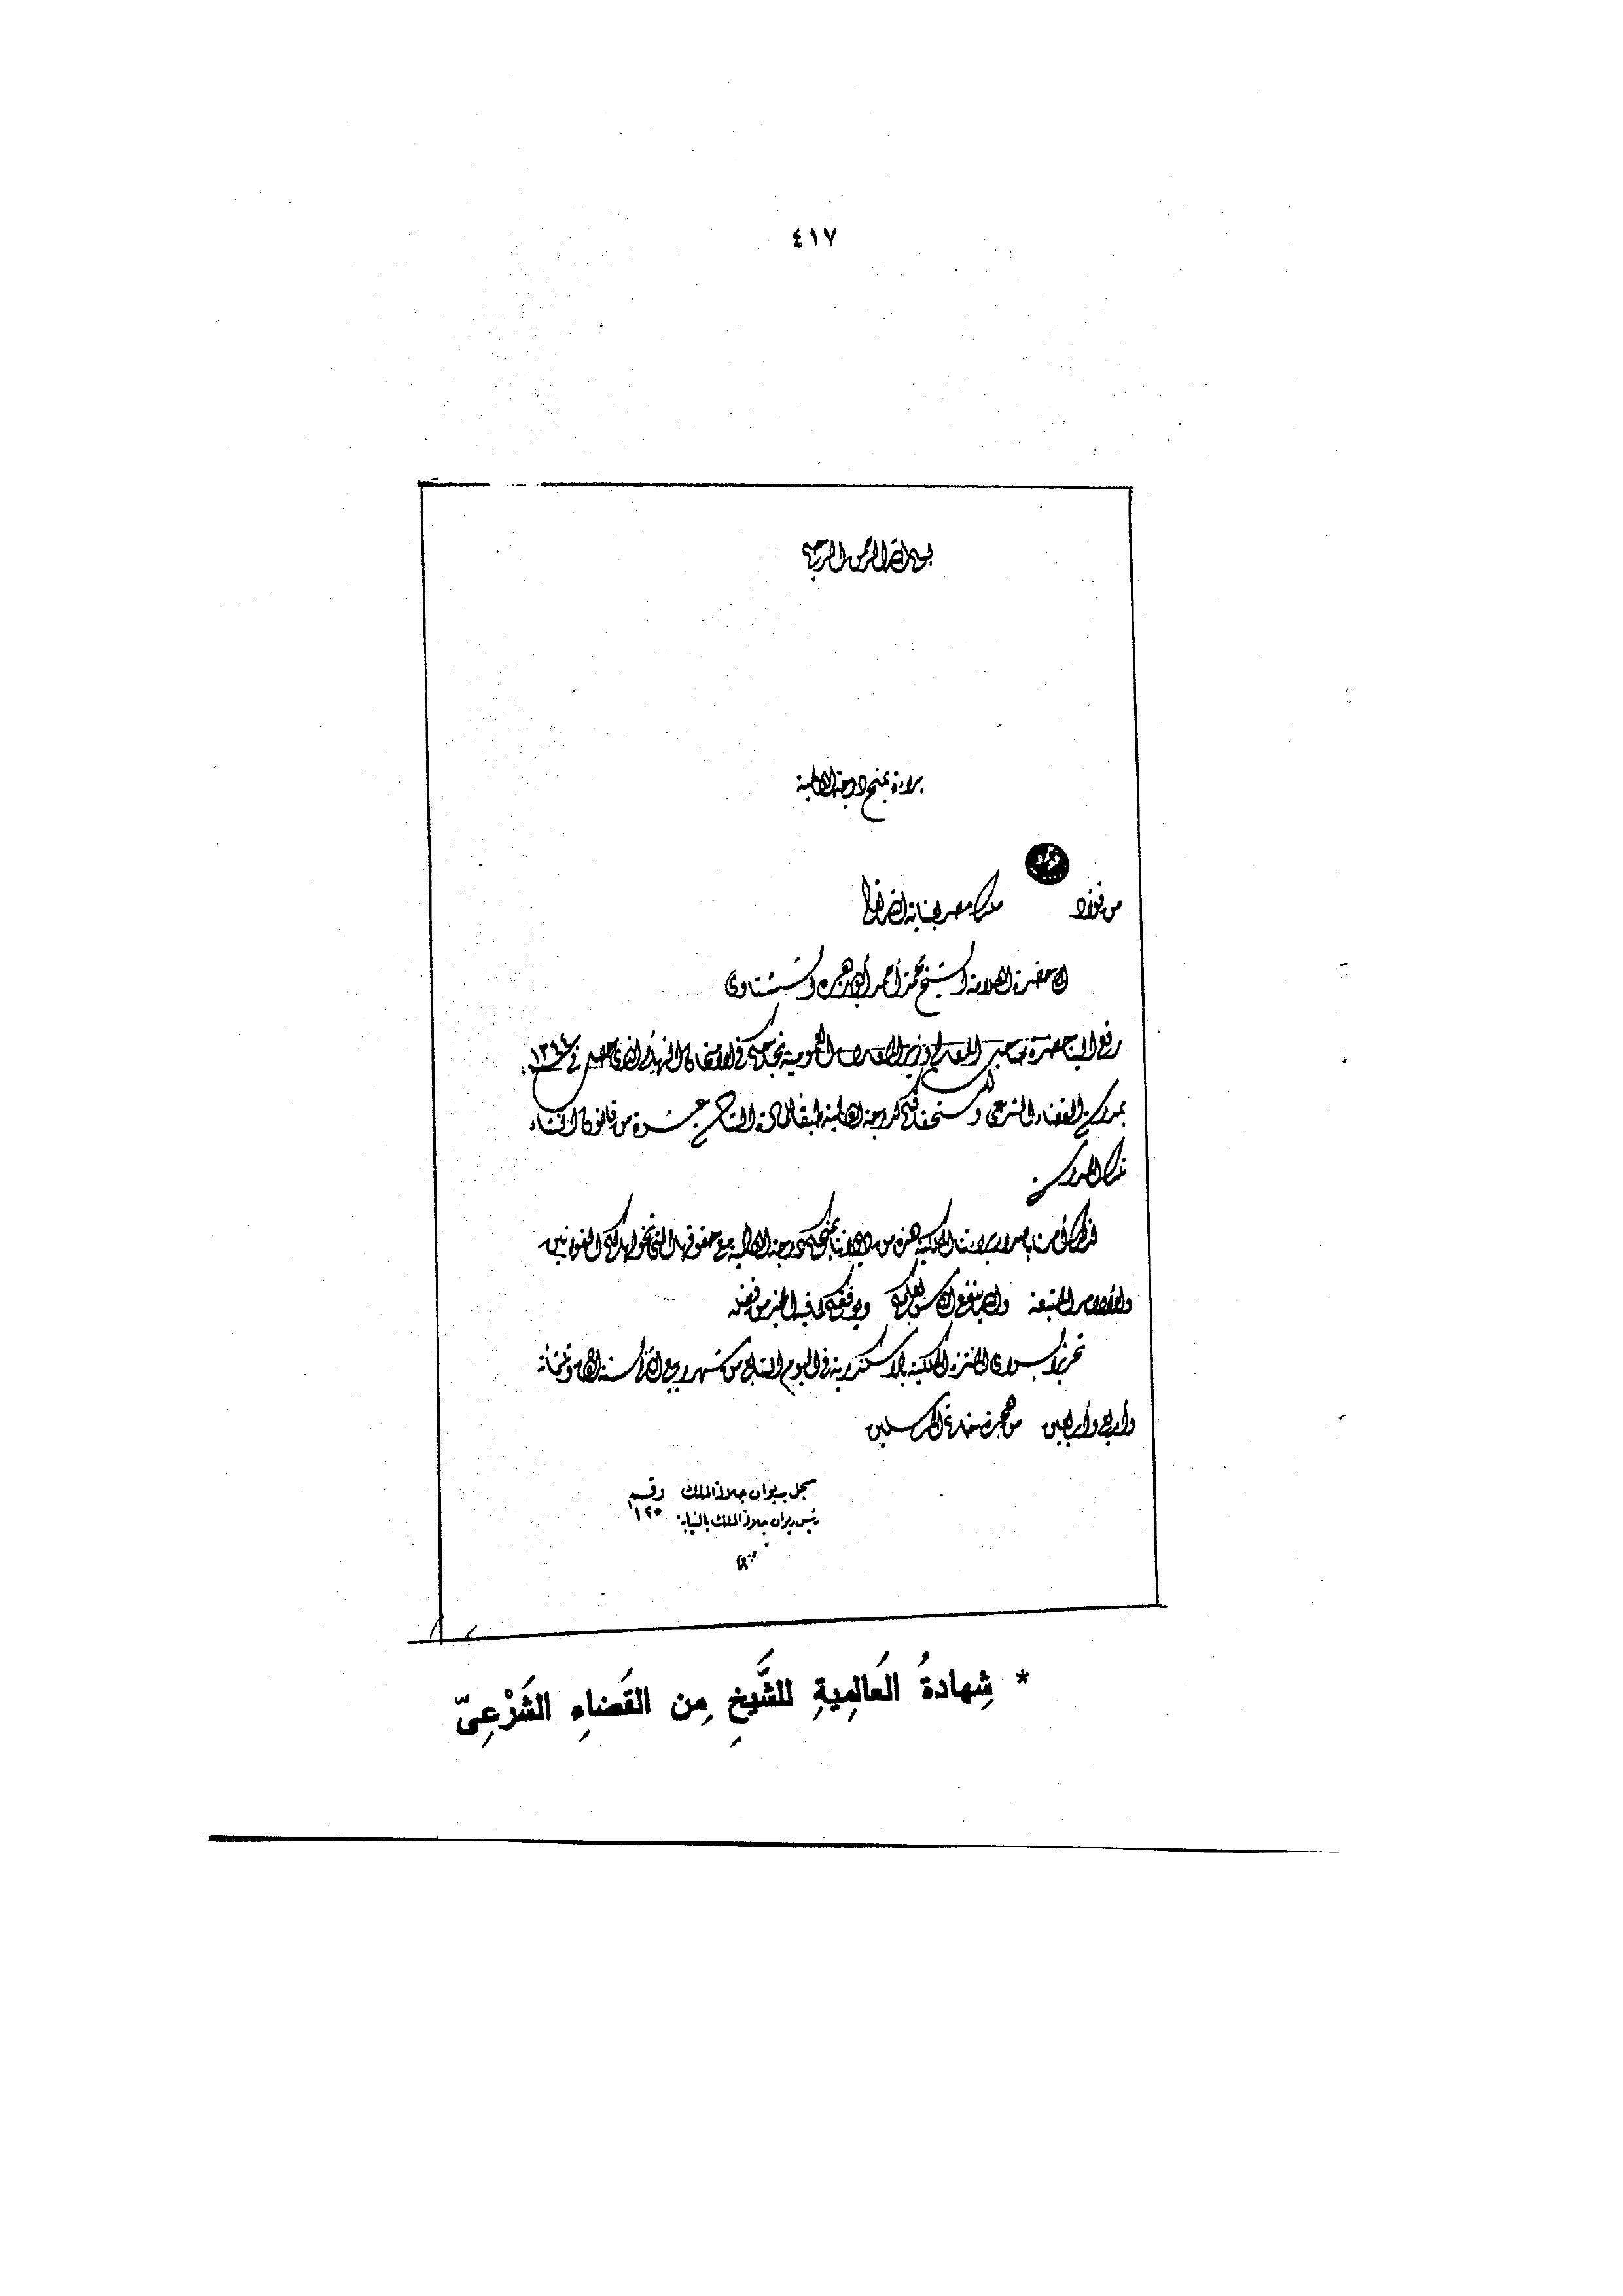 ٤١٧
بسم الله الرحمن الرحيم
براءة بمنح درجة العالمية
من فؤاد ملك مصر بعناية الله تعالى
إلى حضرة العلامة الشيخ محمد أحمد أبو زهرة الششتاوى
رفع إلينا حضرة صاحب المعالي وزير المعارف العمومية نجاحكم في الامتحان النهائي الذي حصل في ١٣٤٤
بمدرسة القضاء الشرعي واستحقاقكم لدرجة العالمية طبقا للمادة التاسعة عشرة من قانون إنشاء
تلك المدرسة
لذلك أمرنا بإصدار براءتنا الملكية هذه من ديواننا بمنحكم درجة العالمية مع حقوقها التي تخولها لكم القوانين
والأوامر المتبعة والله ينفع الناس بعلمكم ويوفقكم لما فيه الخير من فضله
تحريرا بسراى المنتزه الملكية بالاسكندرية في اليوم السابع من شهر ربيع سنة ألف وثلثمائة
وأربع وأربعين من هجرة خاتم المرسلين
سجل بديوان جلالة الملك رقم
رئيس ديوان جلالة الملك بالنيابة ١٢٥
* شِهادةُ العَالِميةِ للشَّيخِ مِن القَضاءِ الشَرْعِىّ